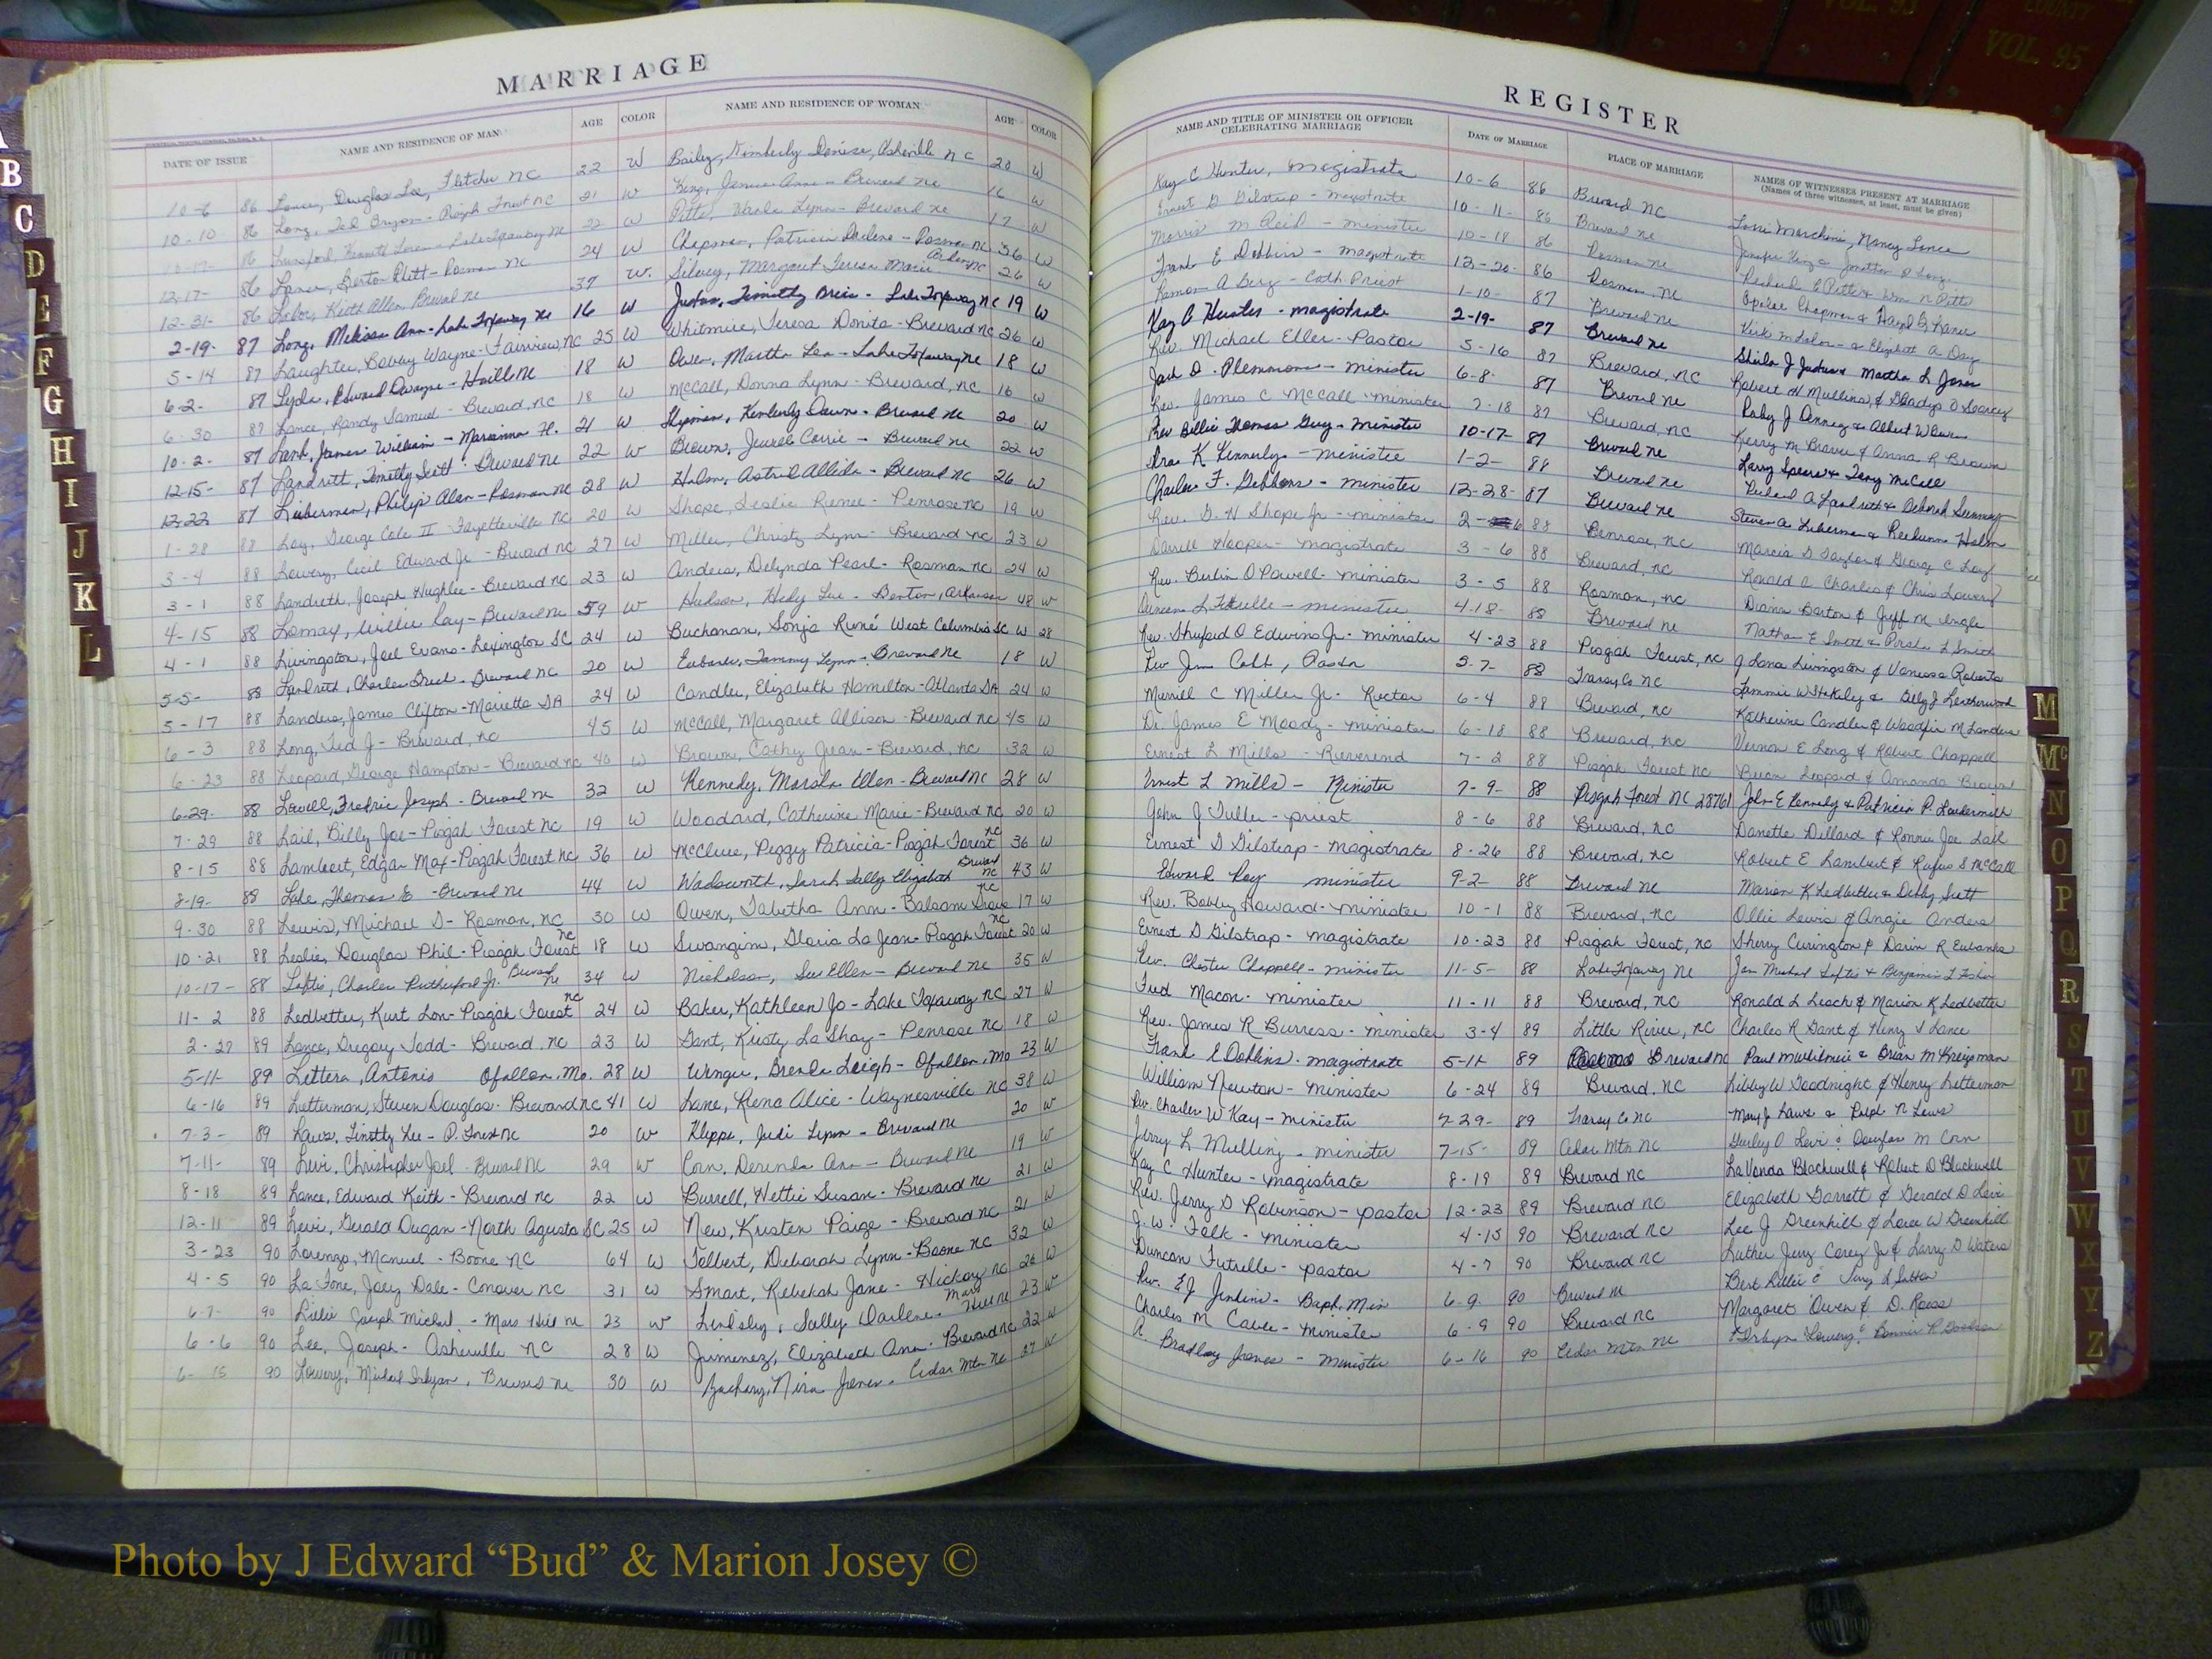 COUNTY
VOL. 93
VOL. 95
MARRIAGE
DATE OF ISSUE NAME AND RESIDENCE OF MAN AGE COLOR NAME AND RESIDENCE OF WOMAN AGE COLOR
10-6 86 Lance, Douglas Lee, Fletcher NC 22 W Bailey, Kimberly Denise, Asheville NC 20 W
10-10 86 Long, Ted Bryson - Pisgah Forest NC 21 W King, Jennie Anne - Brevard NC 16 W
86 Lunsford, Kenneth Loren - Lake Toxaway NC 22 W Pitts, Lynn - Brevard NC 17 W
12-17- 86 Lance, Burton Plett - Rosman NC 24 W Chapman, Patricia Darlene - Rosman NC 36 W
12-31- 86 Lalor, Keith Allen Brevard NC 37 W. Silvey, Margaret Teresa Marie NC 26 W
2-19- 87 Long, Melissa Ann - Lake Toxaway NC 16 W Justus, Timothy Brian - Lake Toxaway NC 19 W
5-14 87 Laughter, Bobby Wayne - Fairview, NC 25 W Whitmire, Teresa Donita - Brevard NC 26 W
6-2- 87 Lyda, Edward Dwayne - Hville NC 18 W Owen, Martha Lea - Lake Toxaway NC 18 W
6-30 87 Lance, Randy Samuel - Brevard, NC 18 W McCall, Donna Lynn - Brevard, NC 16 W
10-2- 87 Lark, James William - Marianna Fl. 21 W Hipman, Kimberly Dawn - Brevard NC 20 W
12-15- 87 Landreth, Timothy Scott - Brevard NC 22 W Brown, Jewell Carrie - Brevard NC 22 W
12-22 87 Lieberman, Philip Alan - Rosman NC 28 W Holm, Astrid Allida - Brevard NC 26 W
1-28 88 Loy, George Cole II Fayetteville NC 20 W Shope, Leslie Renee - Penrose NC 19 W
3-4 88 Lowery, Cecil Edward Jr - Brevard NC 27 W Miller, Christy Lynn - Brevard NC 23 W
3-1 88 Landreth, Joseph Hughlee - Brevard NC 23 W Anders, Delynda Pearl - Rosman NC 24 W
4-15 88 Lomax, Willie Ray - Brevard NC 59 W Hudson, Hedy Lue - Benton, Arkansas 48 W
4-1 88 Livingston, Joel Evans - Lexington SC 24 W Buchanan, Sonja Runé West Columbia SC W 28
5-5- 88 Landreth, Charles Fred - Brevard NC 20 W Eubanks, Tammy Lynn - Brevard NC 18 W
5-17 88 Landers, James Clifton - Marietta GA 24 W Candler, Elizabeth Hamilton - Atlanta GA 24 W
6-3 88 Long, Ted J - Brevard, NC 45 W McCall, Margaret Allison - Brevard NC 45 W
6-23 88 Leopard, George Hampton - Brevard NC 40 W Brown, Cathy Jean - Brevard, NC 32 W
6-29- 88 Lowell, Fredric Joseph - Brevard NC 32 W Kennedy, Marsha Ellen - Brevard NC 28 W
7-29 88 Lail, Billy Joe - Pisgah Forest NC 19 W Woodard, Catherine Marie - Brevard NC 20 W
8-15 88 Lambert, Edgar Max - Pisgah Forest NC 36 W McClure, Peggy Patricia - Pisgah Forest NC 36 W
8-19- 88 Lale, Thomas E - Brevard NC 44 W Wadsworth, Sarah Sally Elizabeth Brevard NC 43 W
9-30 88 Lewis, Michael D - Rosman, NC 30 W Owen, Tabetha Ann - Balsam Grove NC 17 W
10-21 88 Leslie, Douglas Phil - Pisgah Forest NC 18 W Swangim, Gloria LaJean - Pisgah Forest NC 20 W
10-17- 88 Loftis, Charles Rutherford Jr. Brevard NC 34 W Nicholson, Sue Ellen - Brevard NC 35 W
11-2 88 Ledbetter, Kurt Lon - Pisgah Forest NC 24 W Baker, Kathleen Jo - Lake Toxaway NC 27 W
2-27 89 Lance, Gregory Todd - Brevard, NC 23 W Gant, Kristy LaShay - Penrose NC 18 W
5-11- 89 Lettera, Antonio Ofallon, Mo. 28 W Wenger, Brenda Leigh - Ofallon, Mo 23 W
6-16 89 Letterman, Steven Douglas - Brevard NC 41 W Lane, Rena Alice - Waynesville NC 38 W
7-3- 89 Laws, Timothy Lee - P. Forest NC 20 W Klepps, Judi Lynn - Brevard NC 20 W
7-11- 89 Levi, Christopher Joel - Brevard NC 29 W Corn, Derenda Ann - Brevard NC 19 W
8-18 89 Lance, Edward Keith - Brevard NC 22 W Burrell, Hettie Susan - Brevard NC 21 W
12-11 89 Levi, Gerald Dugan - North Agusta SC 25 W New, Kristen Paige - Brevard NC 21 W
3-23 90 Lorenzo, Manuel - Boone NC 64 W Tolbert, Deborah Lynn - Boone NC 32 W
4-5 90 La Fone, Joey Dale - Conover NC 31 W Smart, Rebekah Jane - Hickory NC 26 W
6-7- 90 Lillie Joseph Michael - Mars Hill NC 23 W Lindsley, Sally Darlene - Mars Hill NC 23 W
6-6 90 Lee, Joseph - Asheville NC 28 W Jiminez, Elizabeth Ann - Brevard NC 22 W
6-15 90 Lowery, Michael Irbyan, Brevard NC 30 W Zachary, Nina Jones - Cedar Mtn NC 37 W
REGISTER
NAME AND TITLE OF MINISTER OR OFFICER CELEBRATING MARRIAGE DATE OF MARRIAGE PLACE OF MARRIAGE NAMES OF WITNESSES PRESENT AT MARRIAGE
(Names of three witnesses, at least, must be given)
Kay C Hunter, magistrate 10-6 86 Brevard NC Lorri Marchini, Nancy Lance
Ernest D Gilstrap - magistrate 10-11- 86 Brevard NC Jennifer King & Jonathan D Long
Morris M Reid - minister 10-18 86 Rosman NC Richard E Pitts & Wm N Pitts
Frank E Dobbins - magistrate 12-20- 86 Rosman, NC Opalee Chapman & Hazel G Lance
Ramon A Berg - Cath. Priest 1-10- 87 Brevard NC Kirk M Lalor - & Elizabeth A Day
Kay C Hunter - magistrate 2-19- 87 Brevard NC Sheila J Justus & Martha L Jones
Rev. Michael Eller - Pastor 5-16 87 Brevard, NC Robert H Mullinax & Gladys O Searcy
Jack D. Plemmons - minister 6-8- 87 Brevard NC Ruby J Penney & Albert W Owen
Rev. James C McCall - minister 7-18 87 Brevard, NC Kerry M Brown & Anna R Brown
Rev Billie Thomas Guy - minister 10-17- 87 Brevard NC Larry Spears & Terry McCall
Ira K Kennerly - minister 1-2- 88 Brevard NC Richard A Landreth & Deborah Summey
Charles F. Gibbons - minister 12-28- 87 Brevard NC Steven A Lieberman & Reelunn Holm
Rev. G. H Shope Jr - minister 2- 6 88 Penrose, NC Marcia D Taylor & George C Loy
Darrell Hooper - magistrate 3-6 88 Brevard, NC Ronald A Charles & Chris Lowery
Rev. Berlin O Powell - minister 3-5 88 Rosman, NC Diann Barton & Jeff M Ingle
Duncan L Futrelle - minister 4-18- 88 Brevard NC Nathan E Smith & L Smith
Rev. Shuford O Edwins Jr. - minister 4-23 88 Pisgah Forest, NC J Lana Livingston & Vanessa Roberts
Rev Jim Cobb, Pastor 5-7- 88 Transy Co NC Tammie W Stakely & Billy J Leatherwood
Merrill C Miller Jr. - Rector 6-4 88 Brevard, NC Katherine Candler & Woodfin M Landers
Dr. James E Moody - minister 6-18 88 Brevard, NC Vernon E Long & Robert Chappell
Ernest L Mills - Reverend 7-2 88 Pisgah Forest NC Brian Leopard & Amanda Brown
Ernest L Mills - Minister 7-9- 88 Pisgah Forest NC 28761 John E Kennedy & Patricia P. Loudermilk
John J Tuller - priest 8-6 88 Brevard, NC Danette Dillard & Ronnie Joe Lail
Ernest D Gilstrap - magistrate 8-26 88 Brevard, NC Robert E Lambert & Rufus S McCall
Edward Roy minister 9-2- 88 Brevard NC Marion K Ledbetter & Debby Scott
Rev. Bobby Howard - minister 10-1 88 Brevard, NC Ollie Lewis & Angie Anders
Ernest D Gilstrap - magistrate 10-23 88 Pisgah Forest, NC Sherry Curington & Darin R Eubanks
Rev. Chester Chappell - minister 11-5- 88 Lake Toxaway NC Jon Michael Loftis & Benjamin F Fisher
Fred Macon - minister 11-11 88 Brevard, NC Ronald L Leach & Marion K Ledbetter
Rev. James R Burress - minister 3-4 89 Little River, NC Charles R Gant & Henry S Lance
Frank E Dobbins - magistrate 5-11- 89 Brevard NC Paul M Whitmire & Brian M Kreigsman
William Newton - minister 6-24 89 Brevard, NC Libby W Goodnight & Henry Letterman
Rev. Charles W Kay - minister 7-29- 89 Transy Co NC Mary J Laws & Ralph N Laws
Jerry L Mulling - minister 7-15- 89 Cedar Mtn NC Gurley O Levi & Douglas M Corn
Kay C Hunter - magistrate 8-19 89 Brevard NC LaVonda Blackwell & Robert D Blackwell
Rev. Jerry D Robinson - pastor 12-23 89 Brevard NC Elizabeth Garrett & Gerald D Levi
J. W. Falk - minister 4-15 90 Brevard NC Lee J Greenhill & Loree W Greenhill
Duncan Futrelle - pastor 4-7 90 Brevard NC Luther Jerry Carey Jr & Larry D Waters
Rev. E J Jenkins - Bapt. Min 6-9 90 Brevard NC Bert Lillie & Terry L Sutton
Charles M Cable - minister 6-9 90 Brevard NC Margaret Owen & D. Ross
A Bradley Jones - minister 6-16 90 Cedar Mtn NC Irbyn Lowery & Bonnie P Goolsen
A
B
C
D
E
F
G
H
I
J
K
L
M
Mc
N
O
P
Q
R
S
T
U
V
W
X
Y
Z
Photo by J Edward “Bud” & Marion Josey ©